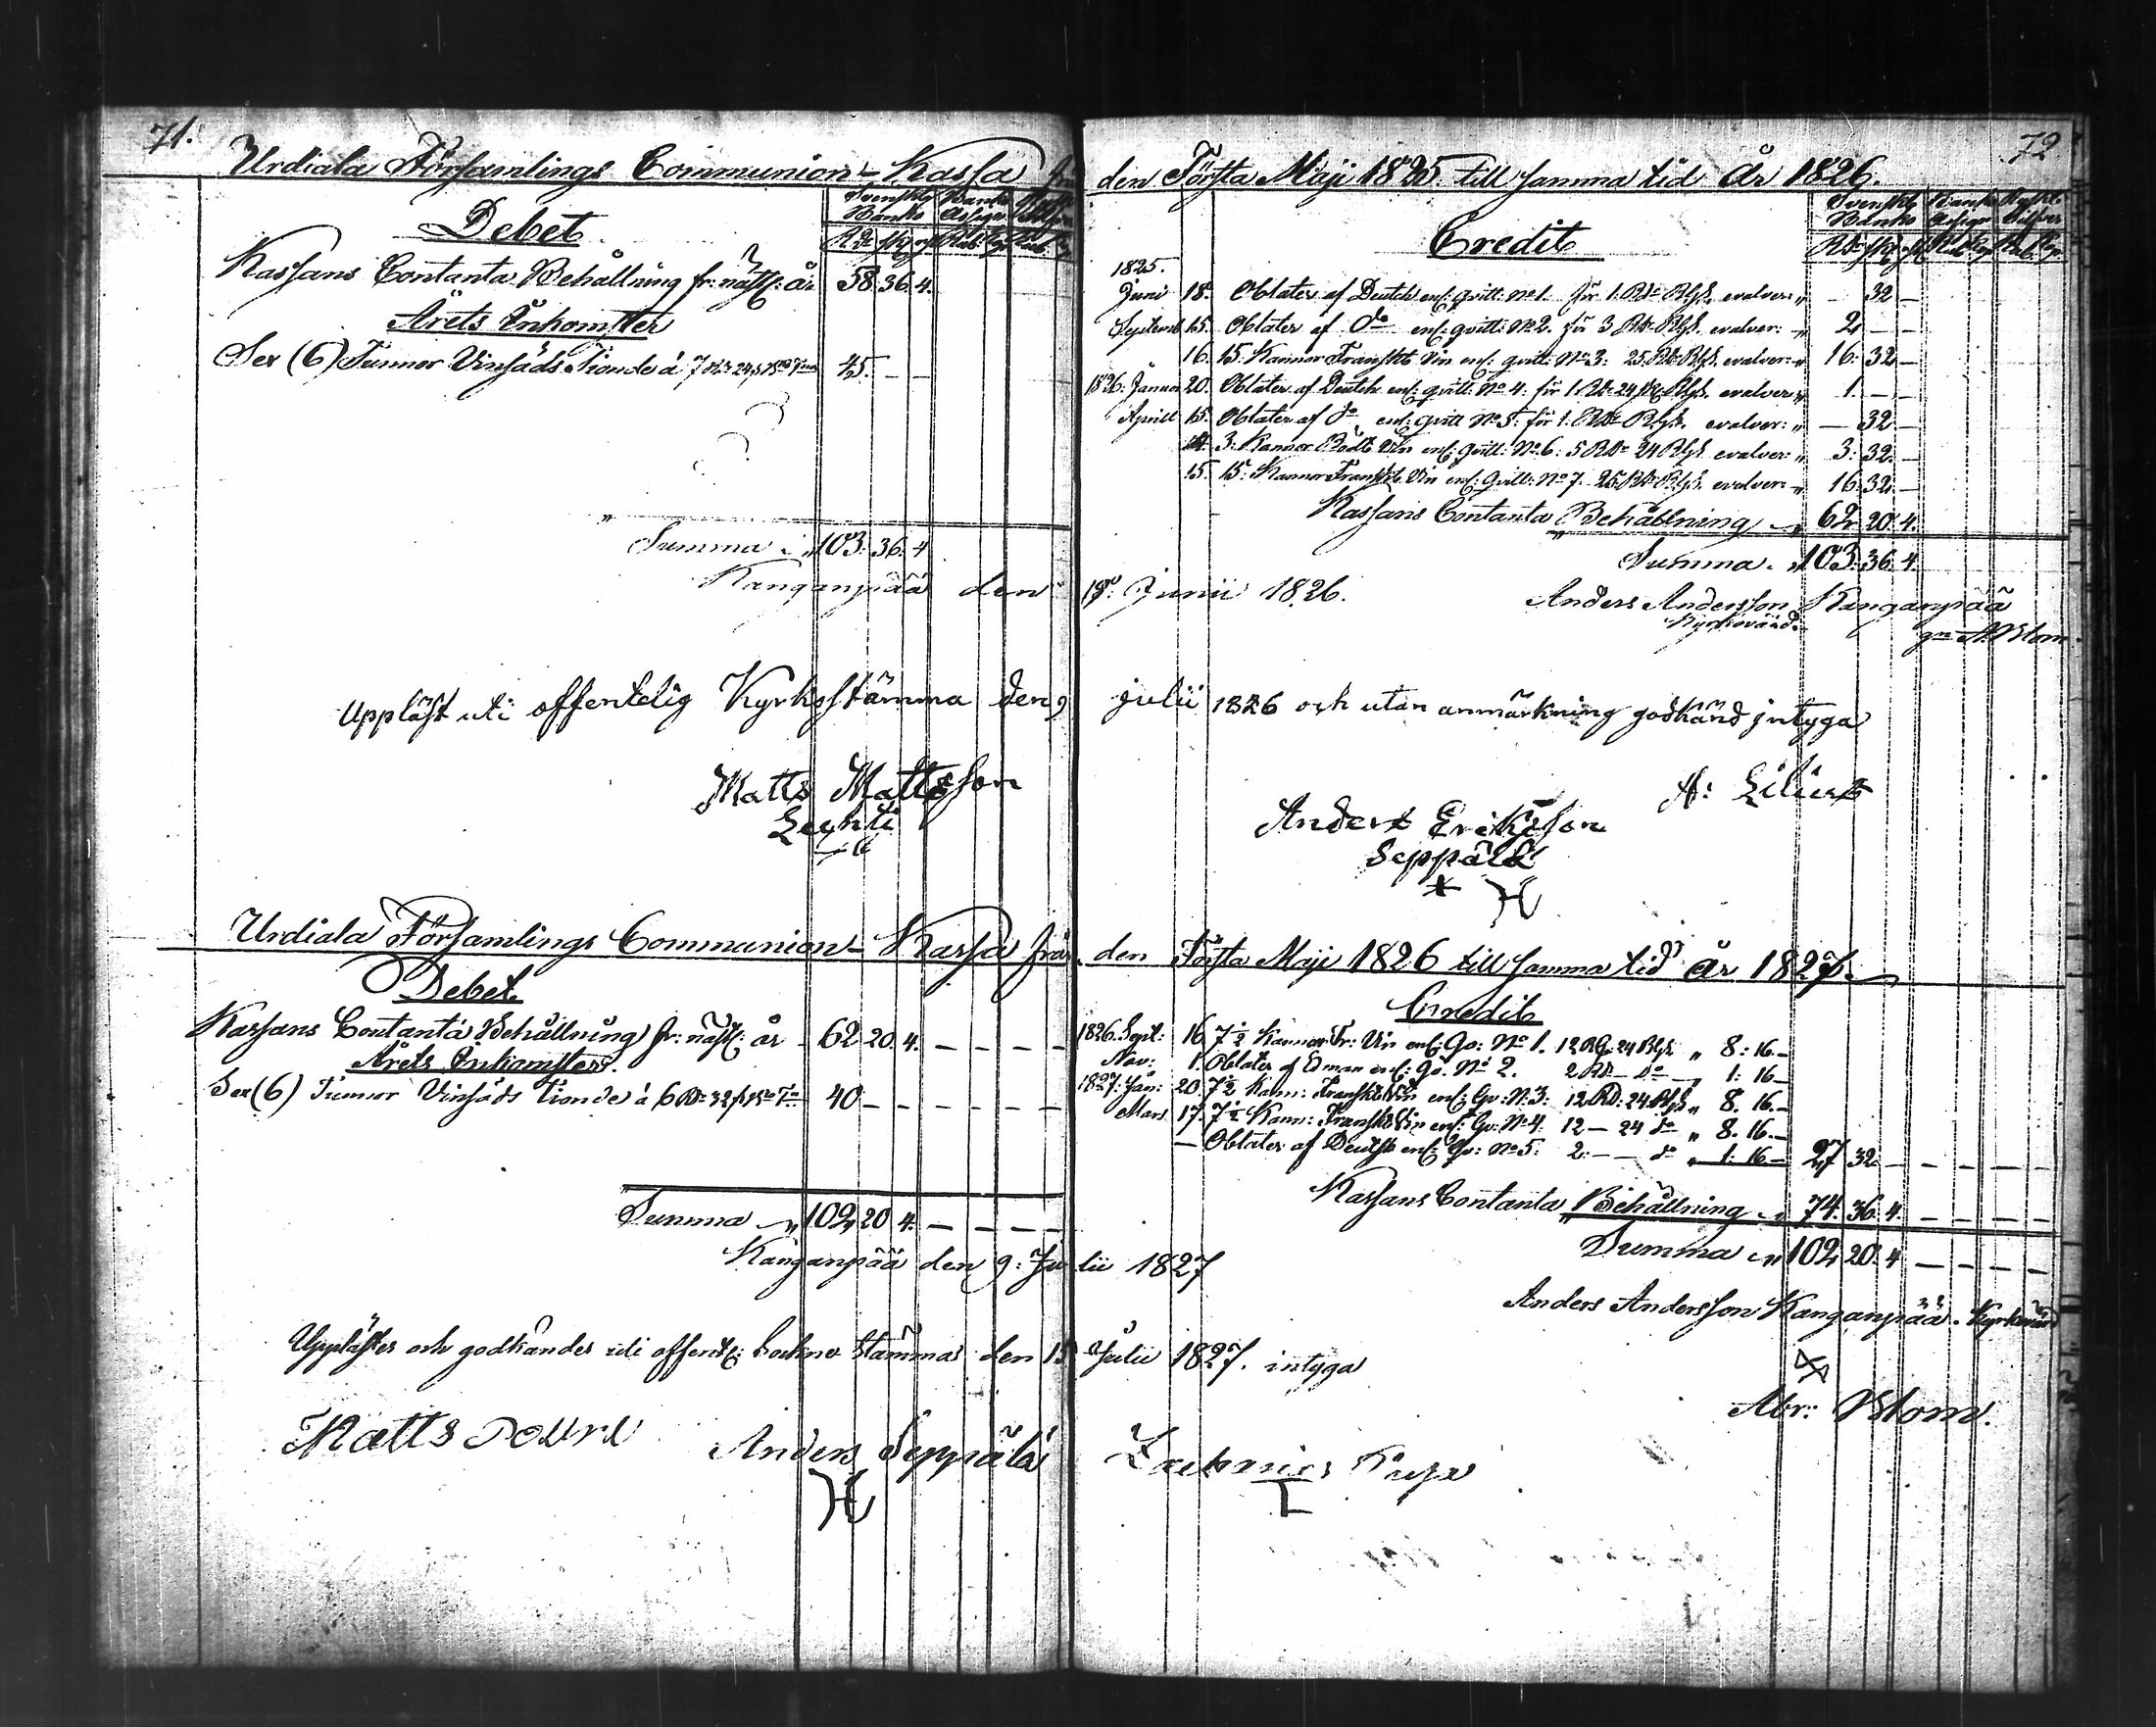 71.
Urdiala Församlings Communion-Kassa från
Svenskt Banko
Banko Assign
Debet
Kassans Contanta Behållning fr: näst: år 58. 36. 4.
Årets Inkomster
Sex (6) Tunnor Vinsäds Tionde á 7 Rdr 24 s 45. — —
Summa " 103. 36. 4
Kanganpää den
Uppläst uti offentelig Kyrkostämma den 9
Matts Mattsson
Leuhti
Urdiala Församlings Communion-Kassa från
Debet.
Kassans Contanta Behållning fr: näst: år 62. 20. 4. — — — —
Årets Inkomster.
Sex (6) Tunnor Vinsäds Tionde á 6 Rdr 32 s 40 — — — — — —
Summa " 102. 20 4. — — — —
Kanganpää den 9: Ju
Upplästes och godkändes uti offentl: Sockne Stämma den 15
Matts
Anders Seppälä
72
den Första Maji 1825. till samma tid År 1826.
Svenskt Banko
Banko Assign
Ryskt Silfver
Credit
1825.
Juni 18. Oblater af Deutch enl: qvitt: No 1. för 1. Rdr Rgs. evalver: " — 32 —
Septemb 15. Oblater af do enl: qvitt: No 2. för 3 Rdr Rgs. evalver: " 2 — —
16. 15. Kannor Franskt Vin enl: qvitt: No 3: 25. Rdr Rgs. evalver: " 16: 32 —
1826. Januari 20. Oblater af Deutch enl: qvitt: No 4. för 1. Rdr 24 sk Rgs. evalver: " 1. — —
Aprill 15. Oblater af do enl: qvitt No 5: för 1: Rdr Rgs. evalver: " — 32 —
3: Kannor Rödt Vin enl: qvitt: No 6: 5 Rdr 24 Rgs. evalver: " 3: 32. —
15. 15: Kannor Franskt Vin enl: qvitt: No 7. 25 Rdr Rgs. evalver: " 16. 32. —
Kassans Contanta Behållning " 62. 20. 4.
Summa " 103. 36. 4.
19: Junii 1826.
Anders Andersson Kanganpää
Kyrkovärd.
gm A. Blom
Julii 1826 och utan anmärkning godkänd intyga
A: Lilius
Anders Eriksson
Seppälä
den Första Maji 1826 till samma tid år 1827.
Credit
1826. Sept: 16. 7½ Kannor Fr: Vin enl: Qv: No 1. 12 Rd: 24 Rgs " 8: 16. —
Nov: 1. Oblater af Edman enl: Qv. No 2. 2 Rd — do " 1: 16 —
1827: Jan: 20. 7½ Kann: Franskt Vin enl: Qv: N: 3: 12 Rd: 24 Rgs " 8. 16. —
Mars 17. 7½ Kann: Franskt Vin enl: Qv: No 4. 12 — 24 do " 8. 16. —
— Oblater af Deutsh enl: Qv: No 5: 2: — — do " 1: 16 — 27 32. — — — — —
Kassans Contanta Behållning " 74. 36. 4. — — — —
Summa " 102. 20. 4 — — — —
lii 1827
Anders Andersson Kanganpää. Kyrkovärd
Julii 1827. intyga
Abr: Blom.